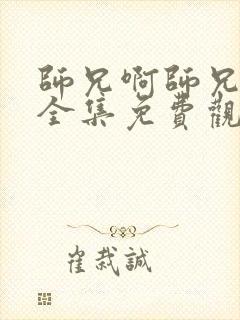 師兄啊師兄
全集免費觀
崔栽誠